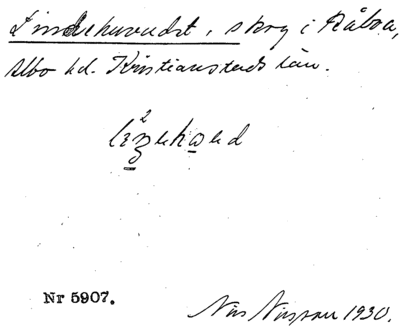 Lindehuvudet, skog i Råbra,
Albo hd. Kristianstads län.
Nr 5907.
Nils Nilsson 1930.